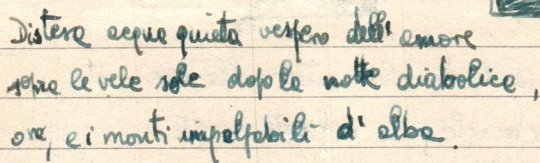 Distesa acqua quieta vespero dell' amore
sopra le vele sole dopo la notte diabolica,
ora, e i monti impalpabili d' alba